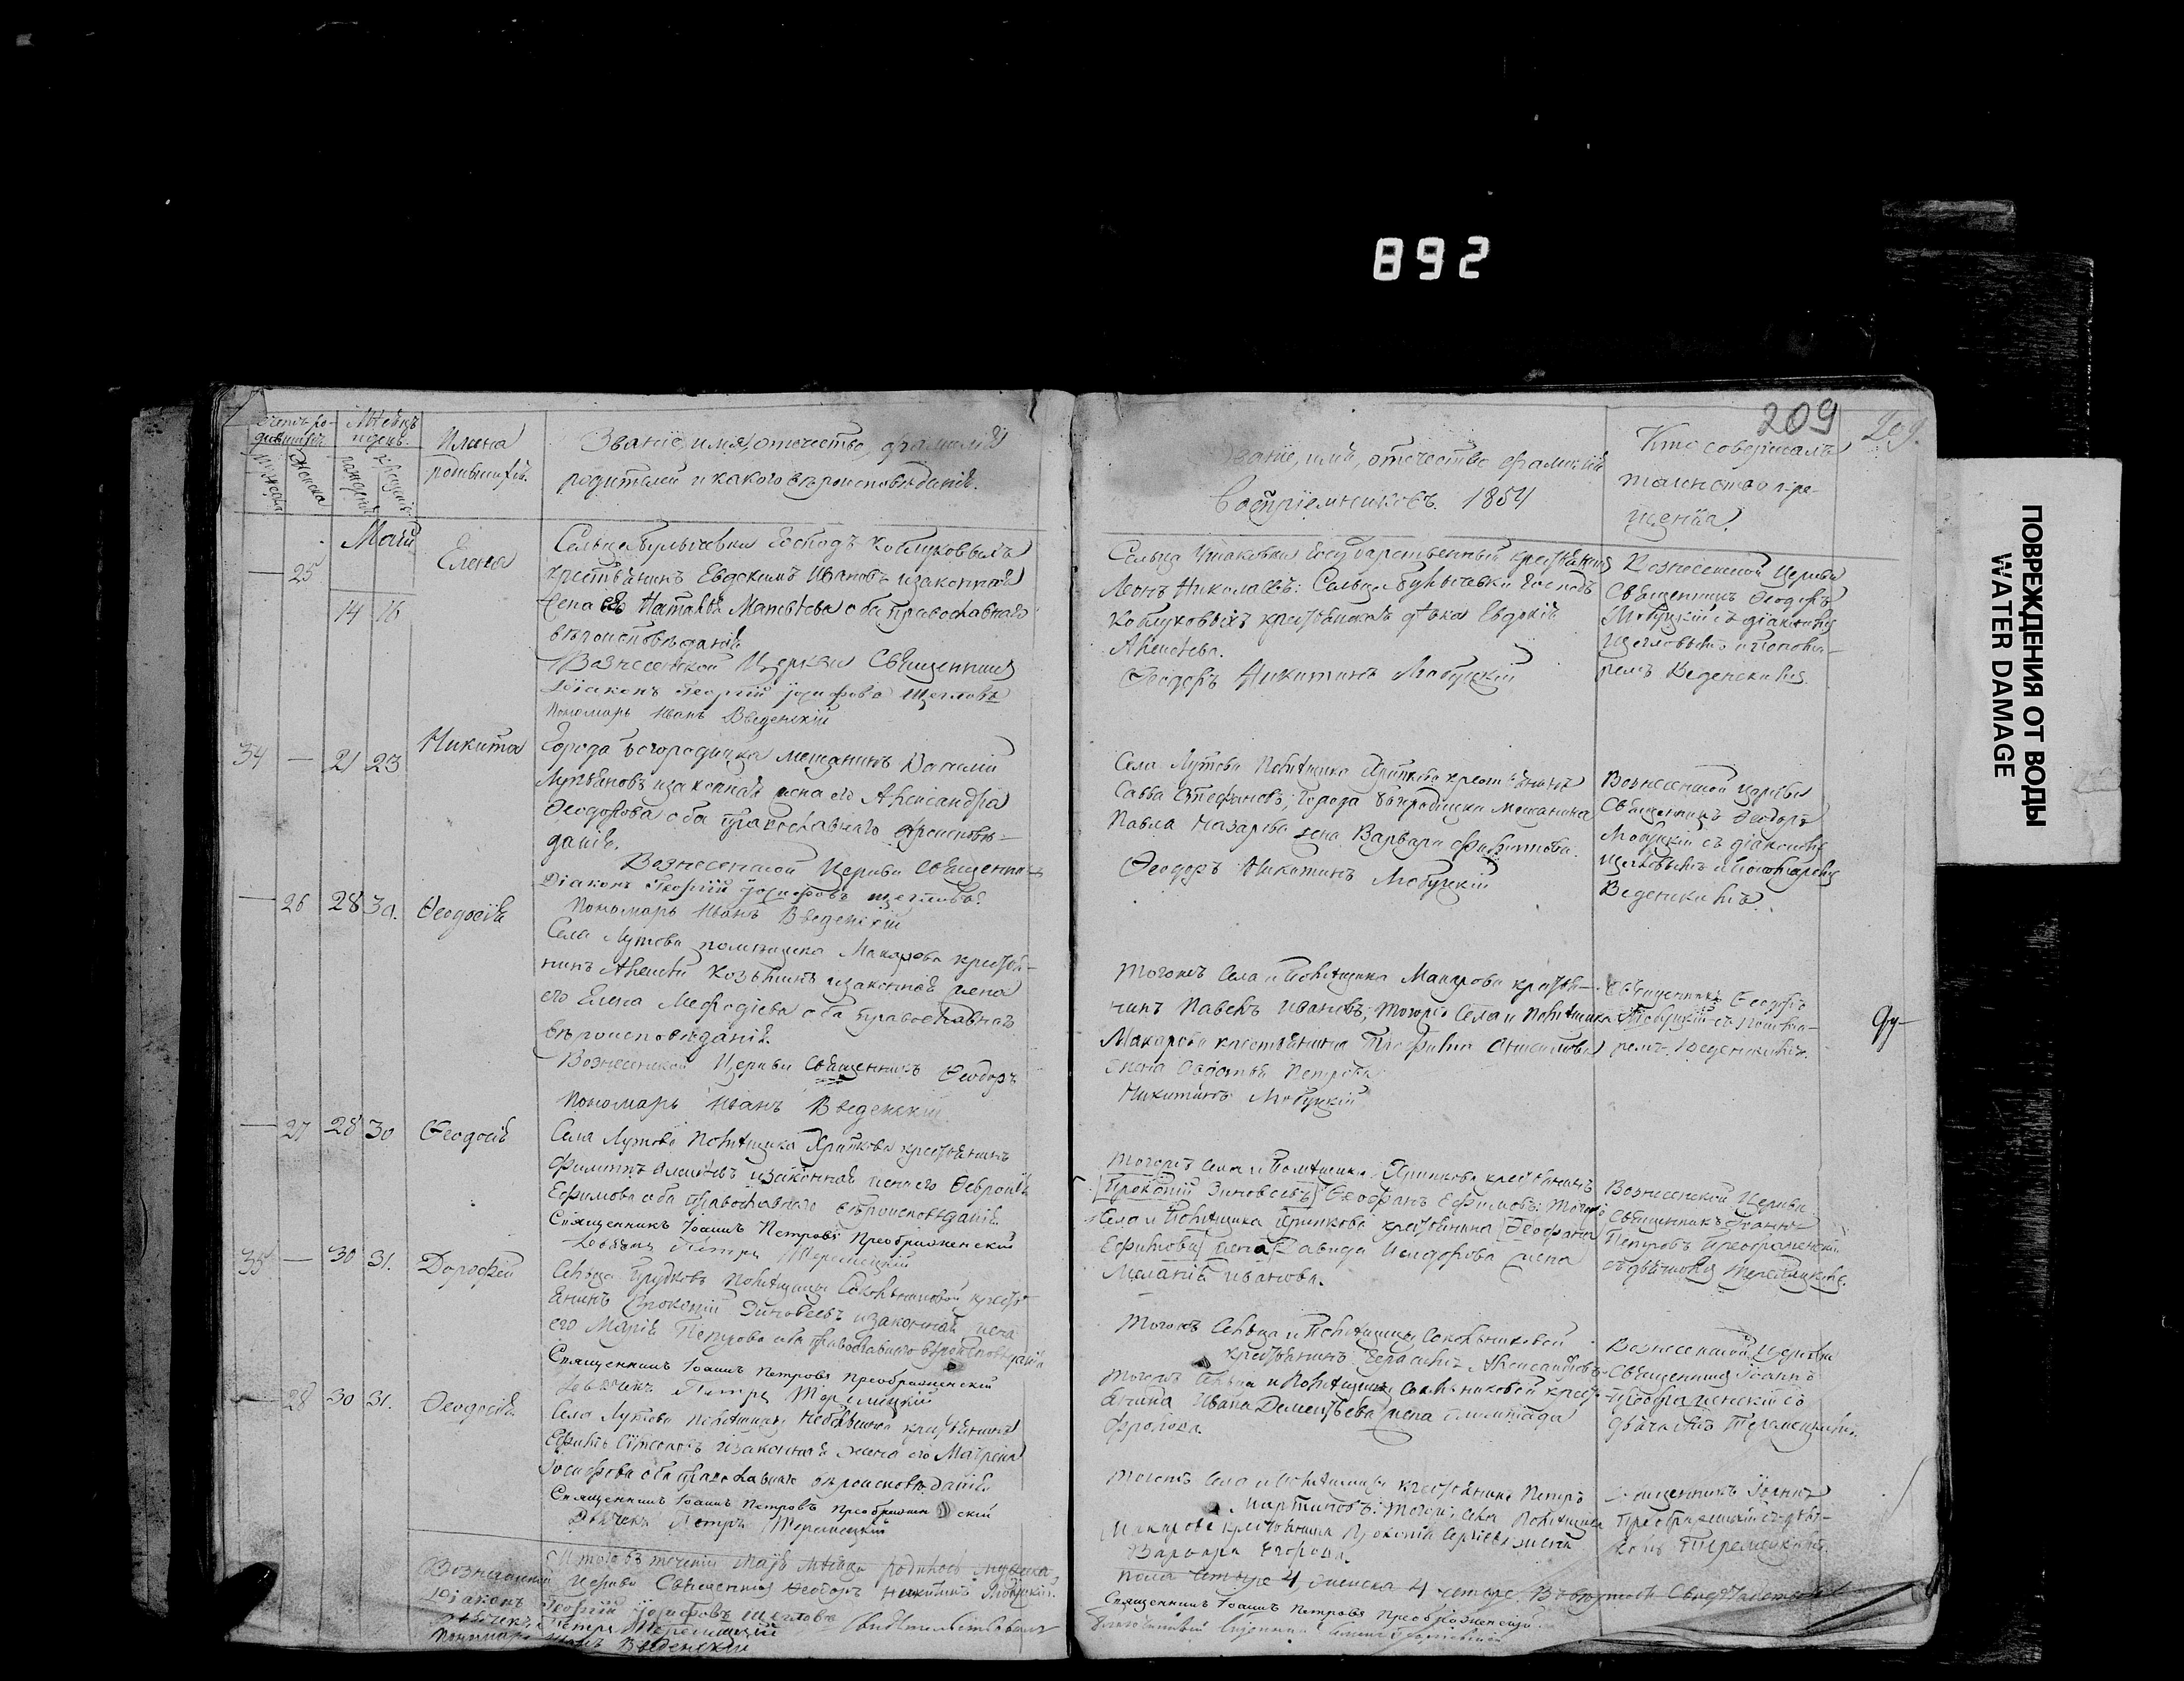 892
209
209.
Счетъ ро-
дившихъ
Мѣсяцъ
и день.
Имена
родившихъ.
Званіе, имя, отечество, фамилія
родителей и какого вѣроисповѣданія.
Званіе, имя, отечество фамилія
воспріемниковъ. 1854
Кто совершалъ
таинство кре-
щенія.
Маій
25
14 16
Елена
Сельца Булычевки Господъ Коблуковыхъ
крестьянинъ Евдокимъ Ивановъ изаконная
жена его Наталія Матвѣева оба православнаго
вѣроисповѣданія
Вознесенской Церкви Священникъ
Діаконъ Георгій Іосифовъ Щегловъ
Пономарь Иванъ Введенскій
Сельца Ушаковки Государственный крестьянинъ
Леонъ Николаевъ: Сельца Булычевки Господъ
Коблуковыхъ крестьянская дѣвка Евдокія
Алексѣева.
Ѳеодоръ Никитинъ Мобуцкій
Вознесенской Церкви
Священникъ Ѳеодоръ
Мобуцкій съ діакономъ
Щегловымъ и Понома-
ремъ Веденскимъ.
34 — 21 23
Никита
Города Богородицка мещанинъ Василій
изаконная жена его Александра
Ѳеодорова оба православнаго вѣроисповѣ-
данія.
Вознесенской Церкви Священникъ
Діаконъ Георгій Іосифовъ Щегловъ
Пономарь Иванъ Введенскій
Села Лутова Помѣщика Хрипкова крестьянинъ
Савва Стефановъ; Города Богородицка мещанина
Павла Назарова жена Варвара Филиппова.
Ѳеодоръ Никитинъ Мобуцкій
Вознесенской Церкви
Священникъ Ѳеодоръ
Мобуцкій съ діакономъ
Щегловымъ и Пономаремъ
Веденскимъ.
— 26 28 30.
Ѳеодосія
Села Лутова помѣщика Макарова крестья-
нинъ Алексѣй Козьминъ изаконная жена
его Елена Меѳодіева оба православнаго
вѣроисповѣданія.
Вознесенской Церкви Священникъ Ѳеодоръ
Пономарь Иванъ Введенскій
Тогожъ Села и Помѣщика Макарова крестья-
нинъ Павелъ Ивановъ; Тогожъ Села и Помѣщика
Макарова крестьянина
жена Петрова
Никитинъ Мобуцкій
Священникъ Ѳеодоръ
Мобуцкій съ Понома-
ремъ Веденскимъ.
— 27 28 30
Ѳеодосія
Села Лутова Помѣщика Хрипкова крестьянинъ
Филиппъ Алексѣевъ изаконная жена его Ѳевронія
Ефимова оба православнаго вѣроисповѣданія.
Священникъ Іоаннъ Петровъ Преображенскій
Дьячекъ Петръ Теремецкій
Тогожъ Села и Помѣщика Хрипкова крестьянинъ
Прокопій Зиновьевъ Ѳеофанъ Ефимовъ: Тогожъ
Села и Помѣщика Хрипкова крестьянина Ѳеофана
Ефимова жена Давида Исидорова жена
Меланія Иванова.
Вознесенской Церкви
Священникъ Іоаннъ
Петровъ Преображенскій
съ дьячкомъ Теремецкимъ.
35 — 30 31.
Дороѳей
Сельца Прудковъ Помѣщицы Сокольниковой кресть-
янинъ Прокопій Зиновьевъ изаконная жена
его Марія Петрова оба православнаго вѣроисповѣданія
Священникъ Іоаннъ Петровъ Преображенскій
Дьячекъ Петръ Теремецкій
Тогожъ Сельца и Помѣщицы Сокольниковой
крестьянинъ Герасимъ Александровъ
Тогожъ Сельца и Помѣщицы Сокольниковой кресть-
янина Ивана Дементьева жена Олимпіада
Фролова.
Вознесенской Церкви
Священникъ Іоаннъ
Преображенскій съ
дьячкомъ Теремецкимъ.
— 28 30 31.
Ѳеодосія
Села Лутова Помѣщицы крестьянинъ
Ефимъ изаконная жена его Матрена
Іосифова оба православнаго вѣроисповѣданія
Священникъ Іоаннъ Петровъ Преображенскій
Дьячекъ Петръ Теремецкій
Тогожъ Села и Помѣщицы крестьянинъ Петръ
Мартиновъ: Тогожъ Села Помѣщика
Макарова крестьянина Прокопія Сергіева жена
Варвара Егорова.
Священникъ Іоаннъ
Преображенскій съ дья-
комъ Теремецкимъ.
Итого въ теченіи Маія мѣсяца родилось мужеска
пола четыре 4 женска 4 четыре.
Вознесенской Церкви Священникъ Ѳеодоръ Никитинъ Мобуцкій.
Діаконъ Георгій Іосифовъ Щегловъ
Дьячекъ Петръ Теремецкій
Пономарь Иванъ Введенскій
Священникъ Іоаннъ Петровъ Преображенскій
ПОВРЕЖДЕНИЯ ОТ ВОДЫ
WATER DAMAGE